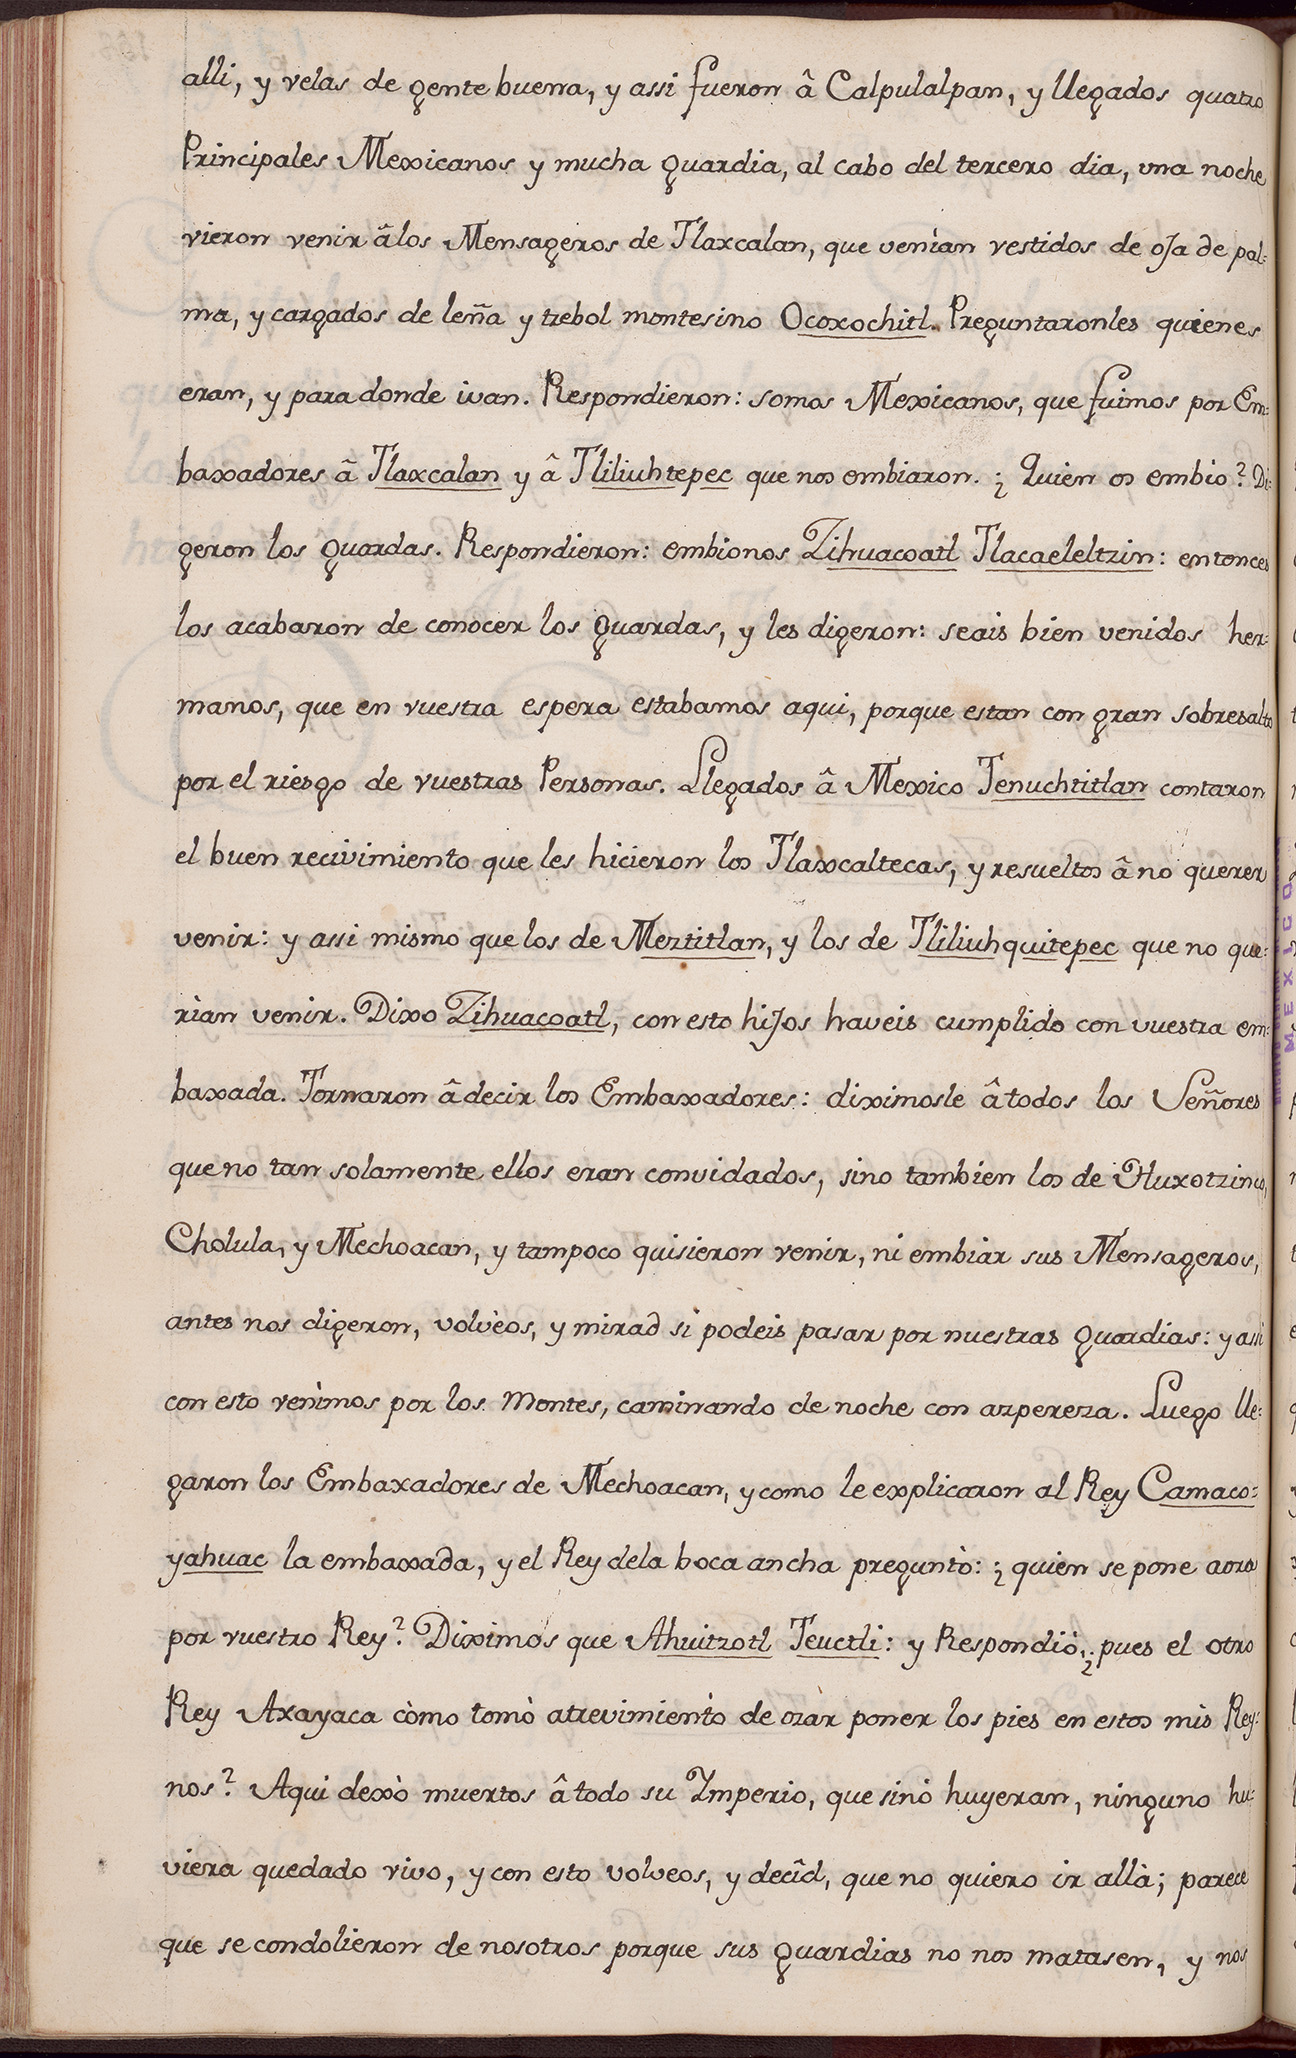 alli, y velas de gente buena, y assi fueron â Calpulalpan, y llegados quatro
Principales Mexicanos y mucha guardia, al cabo del tercero dia, una noche
vieron venir âlos Mensageros de Tlaxcalan, que venìan vestidos de oJa de pal=
ma, y cargados de leña y trebol montesino Ocoxochitl. Preguntaronles quienes
eran, y para donde ivan. Respondieron: somos Mexicanos, que fuimos por Em=
baxadores â Tlaxcalan y â Tliliuhtepec que nos embiaron. ¿ Quien os embio? Di=
geron los guardas. Respondieron: embionos Zihuacoatl Tlacaeleltzin: entonces
los acabaron de conocer los guardas, y les digeron: seais bien venidos her=
manos, que en vuestra espera estabamos aqui, porque estan con gran sobresalto
por el riesgo de vuestras Personas. Llegados â Mexico Tenuchtitlan contaron
el buen recivimiento que les hicieron los Tlaxcaltecas, y resueltos â no querer
venir: y assi mismo que los de Meztitlan, y los de Tliliuhquitepec que no que=
rìan venir. Dixo Zihuacoatl, con esto hiJos haveis cumplido con vuestra em=
baxada. Tornaron â decir los Embaxadores: diximosle â todos los Señores
que no tan solamente ellos eran convidados, sino tambien los de Huxotzinco,
Cholula, y Mechoacan, y tampoco quisieron venir, ni embiar sus Mensageros,
antes nos digeron, volvèos, y mirad si podeis pasar por nuestras guardias: y assi
con esto venimos por los Montes, caminando de noche con azpereza. Luego lle=
garon los Embaxadores de Mechoacan, y como le explicaron al Rey Camaco=
yahuac la embaxada, y el Rey dela boca ancha preguntò: ¿ quien se pone aora
por vuestro Rey? Diximos que Ahuitzotl Teuctli: y Respondiò, ¿ pues el otro
Rey Axayaca còmo tomò atrevimiento de ozar poner los pies en estos mis Rey=
nos? Aqui dexò muertos â todo su Ymperio, que sinò huyeran, ninguno hu=
viera quedado vivo, y con esto volveos, y decîd, que no quiero ir allà; parece
que se condolieron de nosotros porque sus guardias no nos matasen, y nos
MEXICO